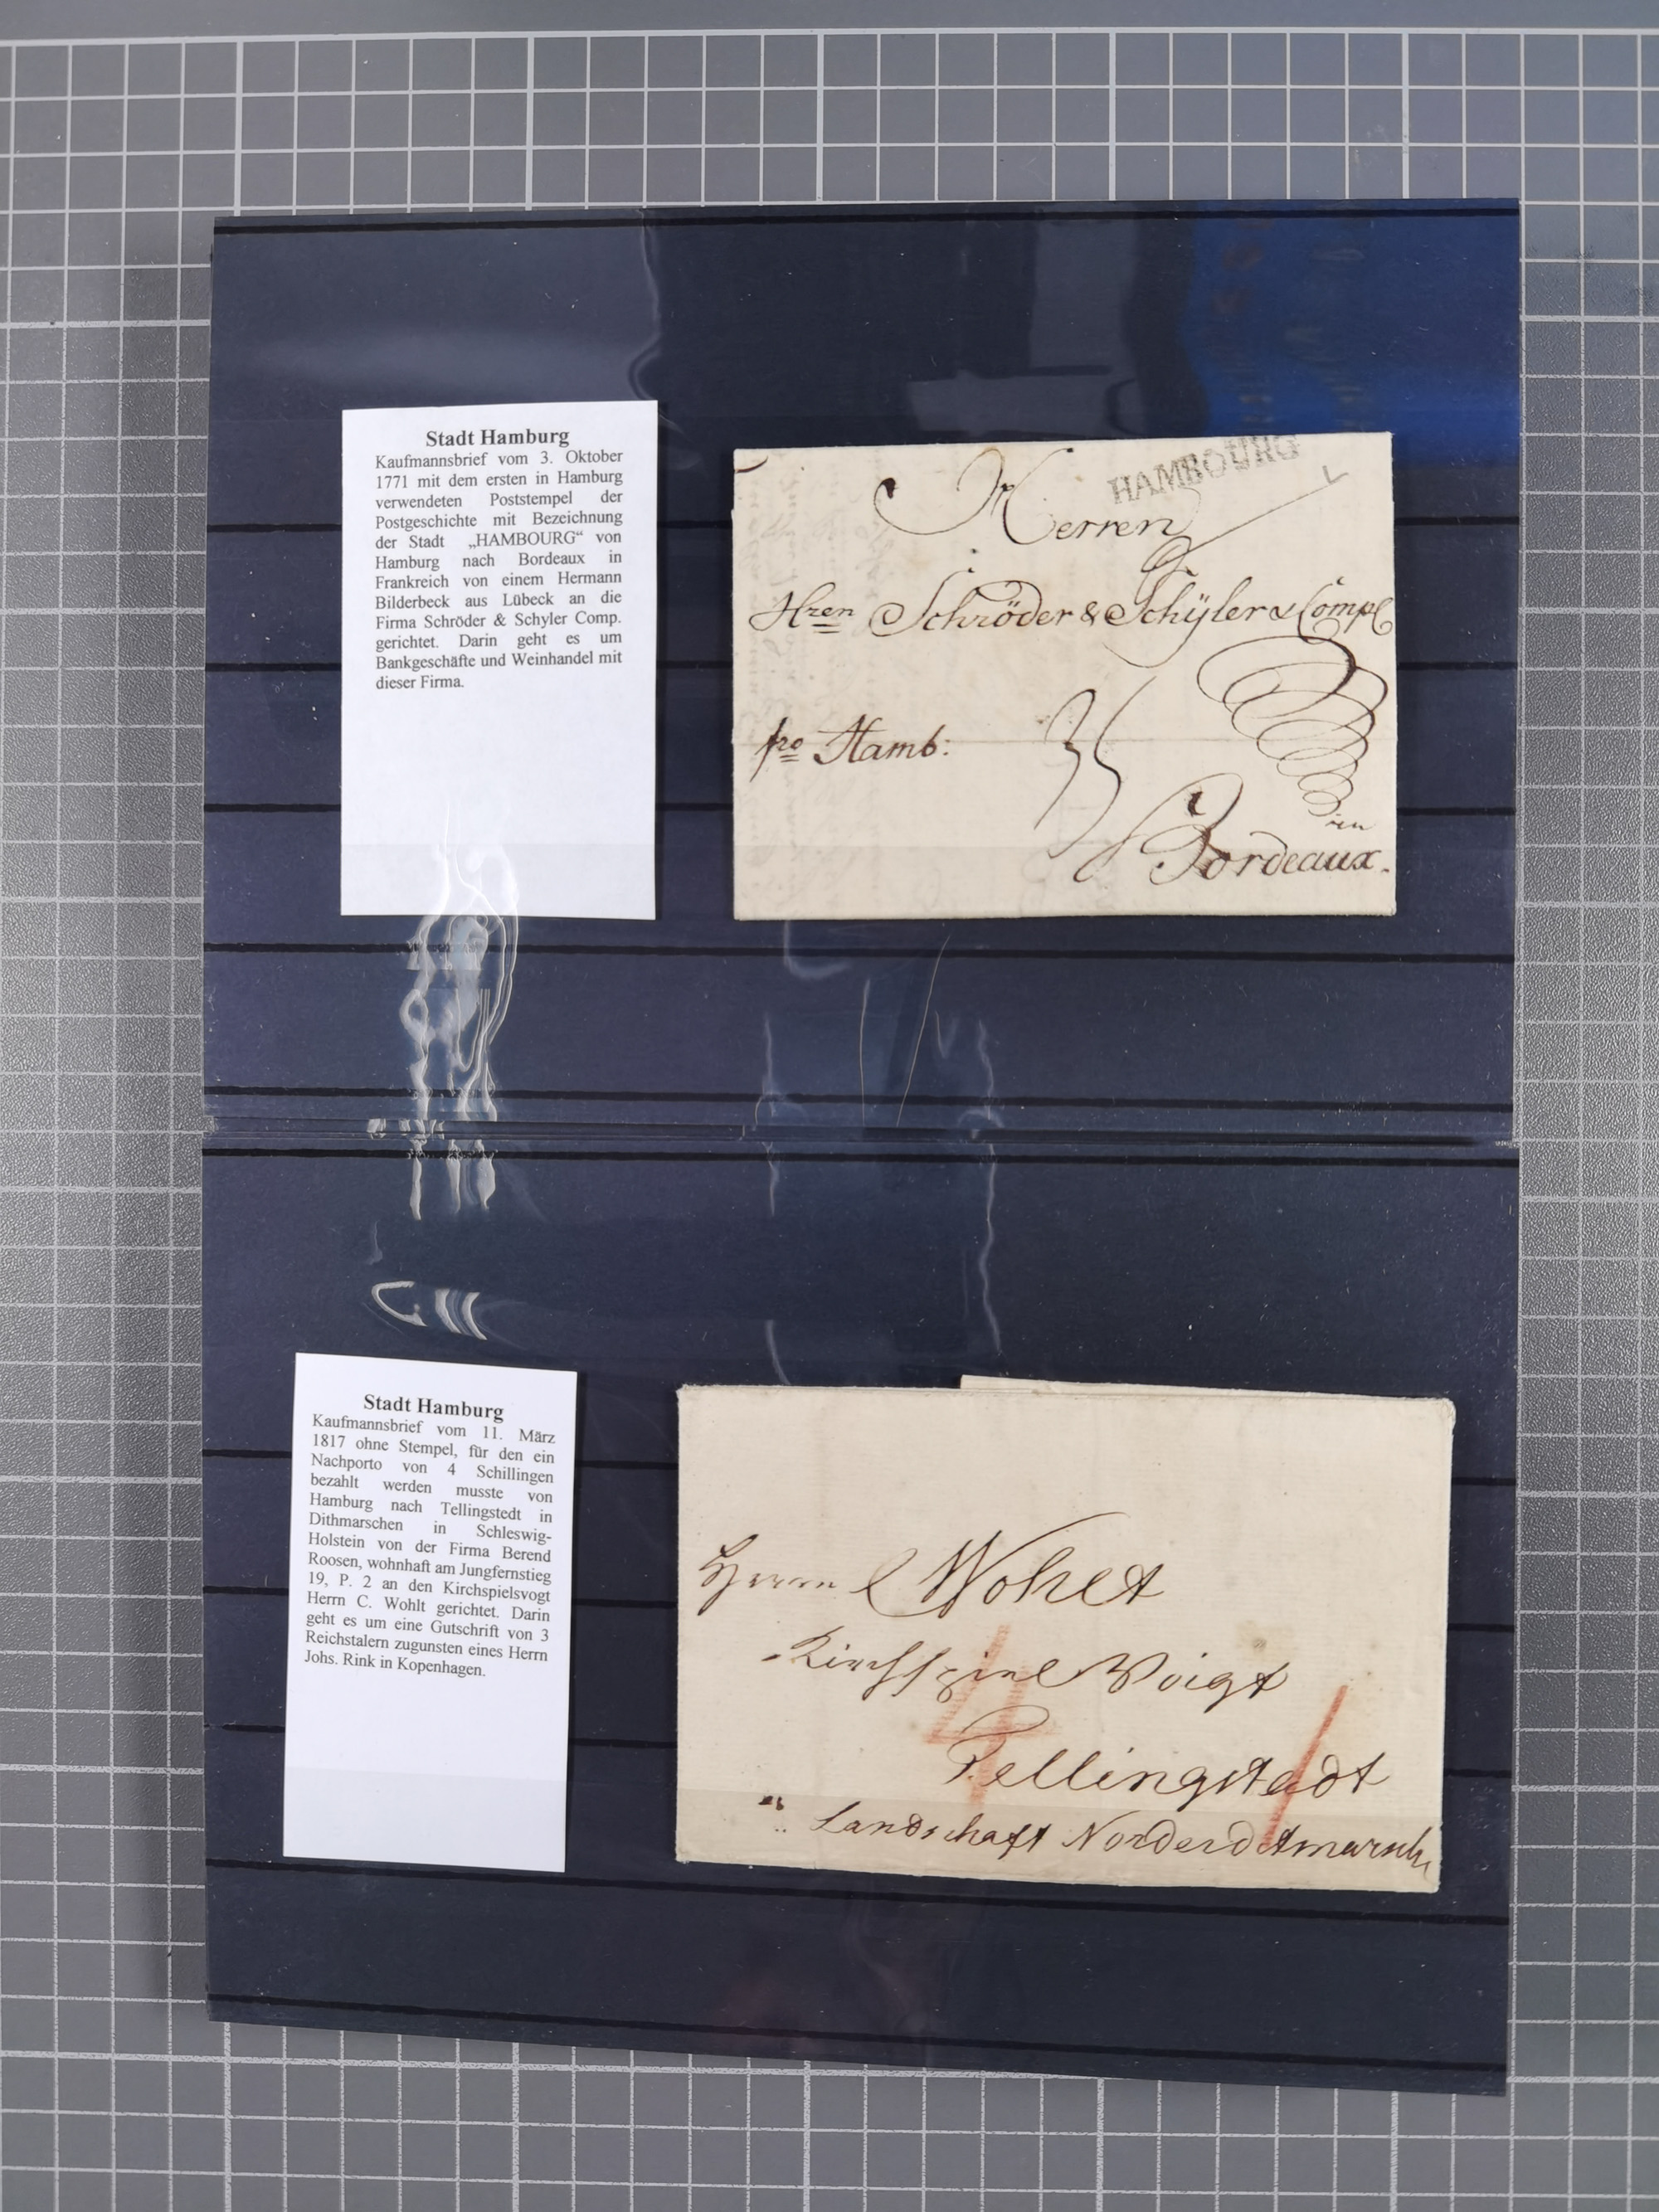 Stadt Hamburg
Kaufmannsbrief vom 3. Oktober
1771 mit dem ersten in Hamburg
verwendeten Poststempel der
Postgeschichte mit Bezeichnung
der Stadt „HAMBOURG“ von
Hamburg nach Bordeaux in
Frankreich von einem Hermann
Bilderbeck aus Lübeck an die
Firma Schröder & Schyler Comp.
gerichtet. Darin geht es um
Bankgeschäfte und Weinhandel mit
dieser Firma.
HAMBOURG
Herren
Hren Schröder & Schÿler & Comp
fro Hamb:
35
in
Bordeaux.
Stadt Hamburg
Kaufmannsbrief vom 11. März
1817 ohne Stempel, für den ein
Nachporto von 4 Schillingen
bezahlt werden musste von
Hamburg nach Tellingstedt in
Dithmarschen in Schleswig-
Holstein von der Firma Berend
Roosen, wohnhaft am Jungfernstieg
19, P. 2 an den Kirchspielsvogt
Herrn C. Wohlt gerichtet. Darin
geht es um eine Gutschrift von 3
Reichstalern zugunsten eines Herrn
Johs. Rink in Kopenhagen.
Herrn C Wohlt
Kirchspiel Voigt
4
Tellingstedt
Landschaft Norderditmarsch